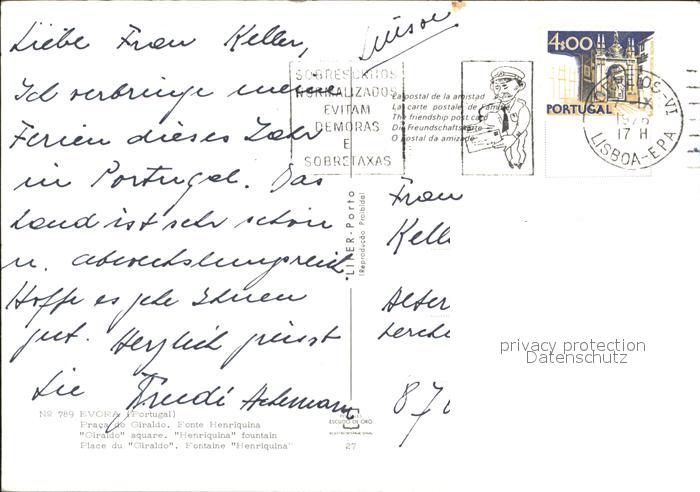 Liebe Frau Keller,
Ich verbringe meine
Ferien dieses Jahr
in Portugal. Das
Land ist sehr schön
u. abwechslungsreich
Hoffe es gehe Ihnen
gut. Herzlich grüsst
Sie Trudi
SOBRESCRITOS
NORMALIZADOS
EVITAM
DEMORAS
E
SOBRETAXAS
La postal de la amistad
La carte postale de l'amitié
The friendship post card
Die Freundschaftskarte
O postal da amizade
4$00
PORTUGAL
1976
17 H
LISBOA-EPA
"LIFER-Porto
(Reprodução Proibida)
Frau
Kell
Alter
Lerche
870
privacy protection
Datenschutz
Nº 789 EVORA (Portugal)
Praça do Giraldo. Fonte Henriquina
"Giraldo" aquare. "Henriquina" fountain
Place du "Giraldo". Fontaine "Henriquina"
ESCUDO DE ORO
27